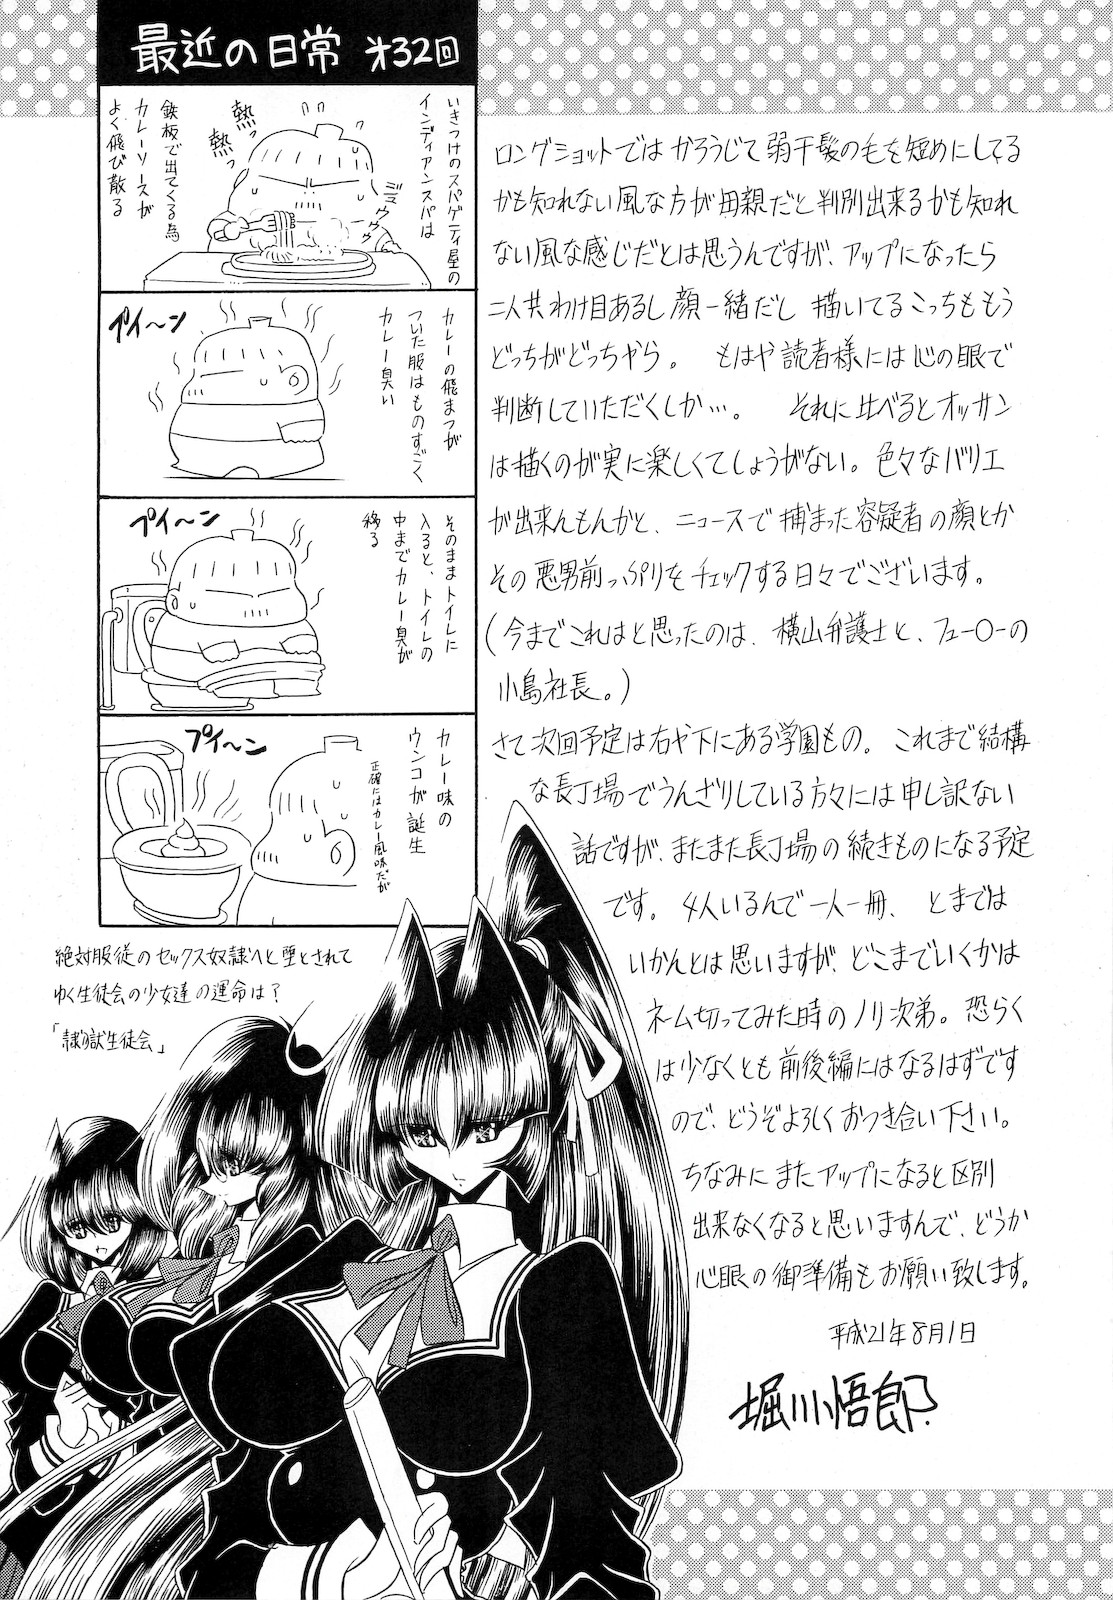 最近の日常 オ32回
いきつけのスパゲティ屋の
インディアンスパは
鉄板で出てくる為
カレーソースが
よく飛び散る
熱っ
熱っ
ミュウゥゥ
カレーの飛まつが
ついた服はものすごく
カレー臭い
プイ〜ン
そのままトイレに
入ると、トイレの
中までカレー臭が
移る
プイ〜ン
カレー味の
ウンコが誕生
正確にはカレー風味だが
プイ〜ン
ロングショットではかろうじて弱干髪の毛を短めにしてる
かも知れない風な方が母親だと判別出来るかも知れ
ない風な感じだとは思うんですが、アップになったら
二人共わけ目あるし顔一緒だし描いてるこっちももう
どっちがどっちやら。もはや読者様には心の眼で
判断していただくしか…。それに比べるとオッサン
は描くのが実に楽しくてしょうがない。色々なバリエ
が出来んもんかと、ニュースで捕まった容疑者の顔とか
その悪男前っぷりをチェックする日々でございます。
(今までこれはと思ったのは、横山弁護士と、フュー〇ーの
小島社長。)
さて次回予定は右や下にある学園もの。これまで結構
な長丁場でうんざりしている方々には申し訳ない
話ですが、またまた長丁場の続きものになる予定
です。4人いるんで一人一冊、とまでは
いかんとは思いますが、どこまでいくかは
ネーム切ってみた時のノリ次弟。恐らく
は少なくとも前後編にはなるはずです
ので、どうぞよろしくおつき合い下さい。
ちなみにまたアップになると区別
出来なくなると思いますんで、どうか
心眼の御準備もお願い致します。
平成21年8月1日
堀川悟郎